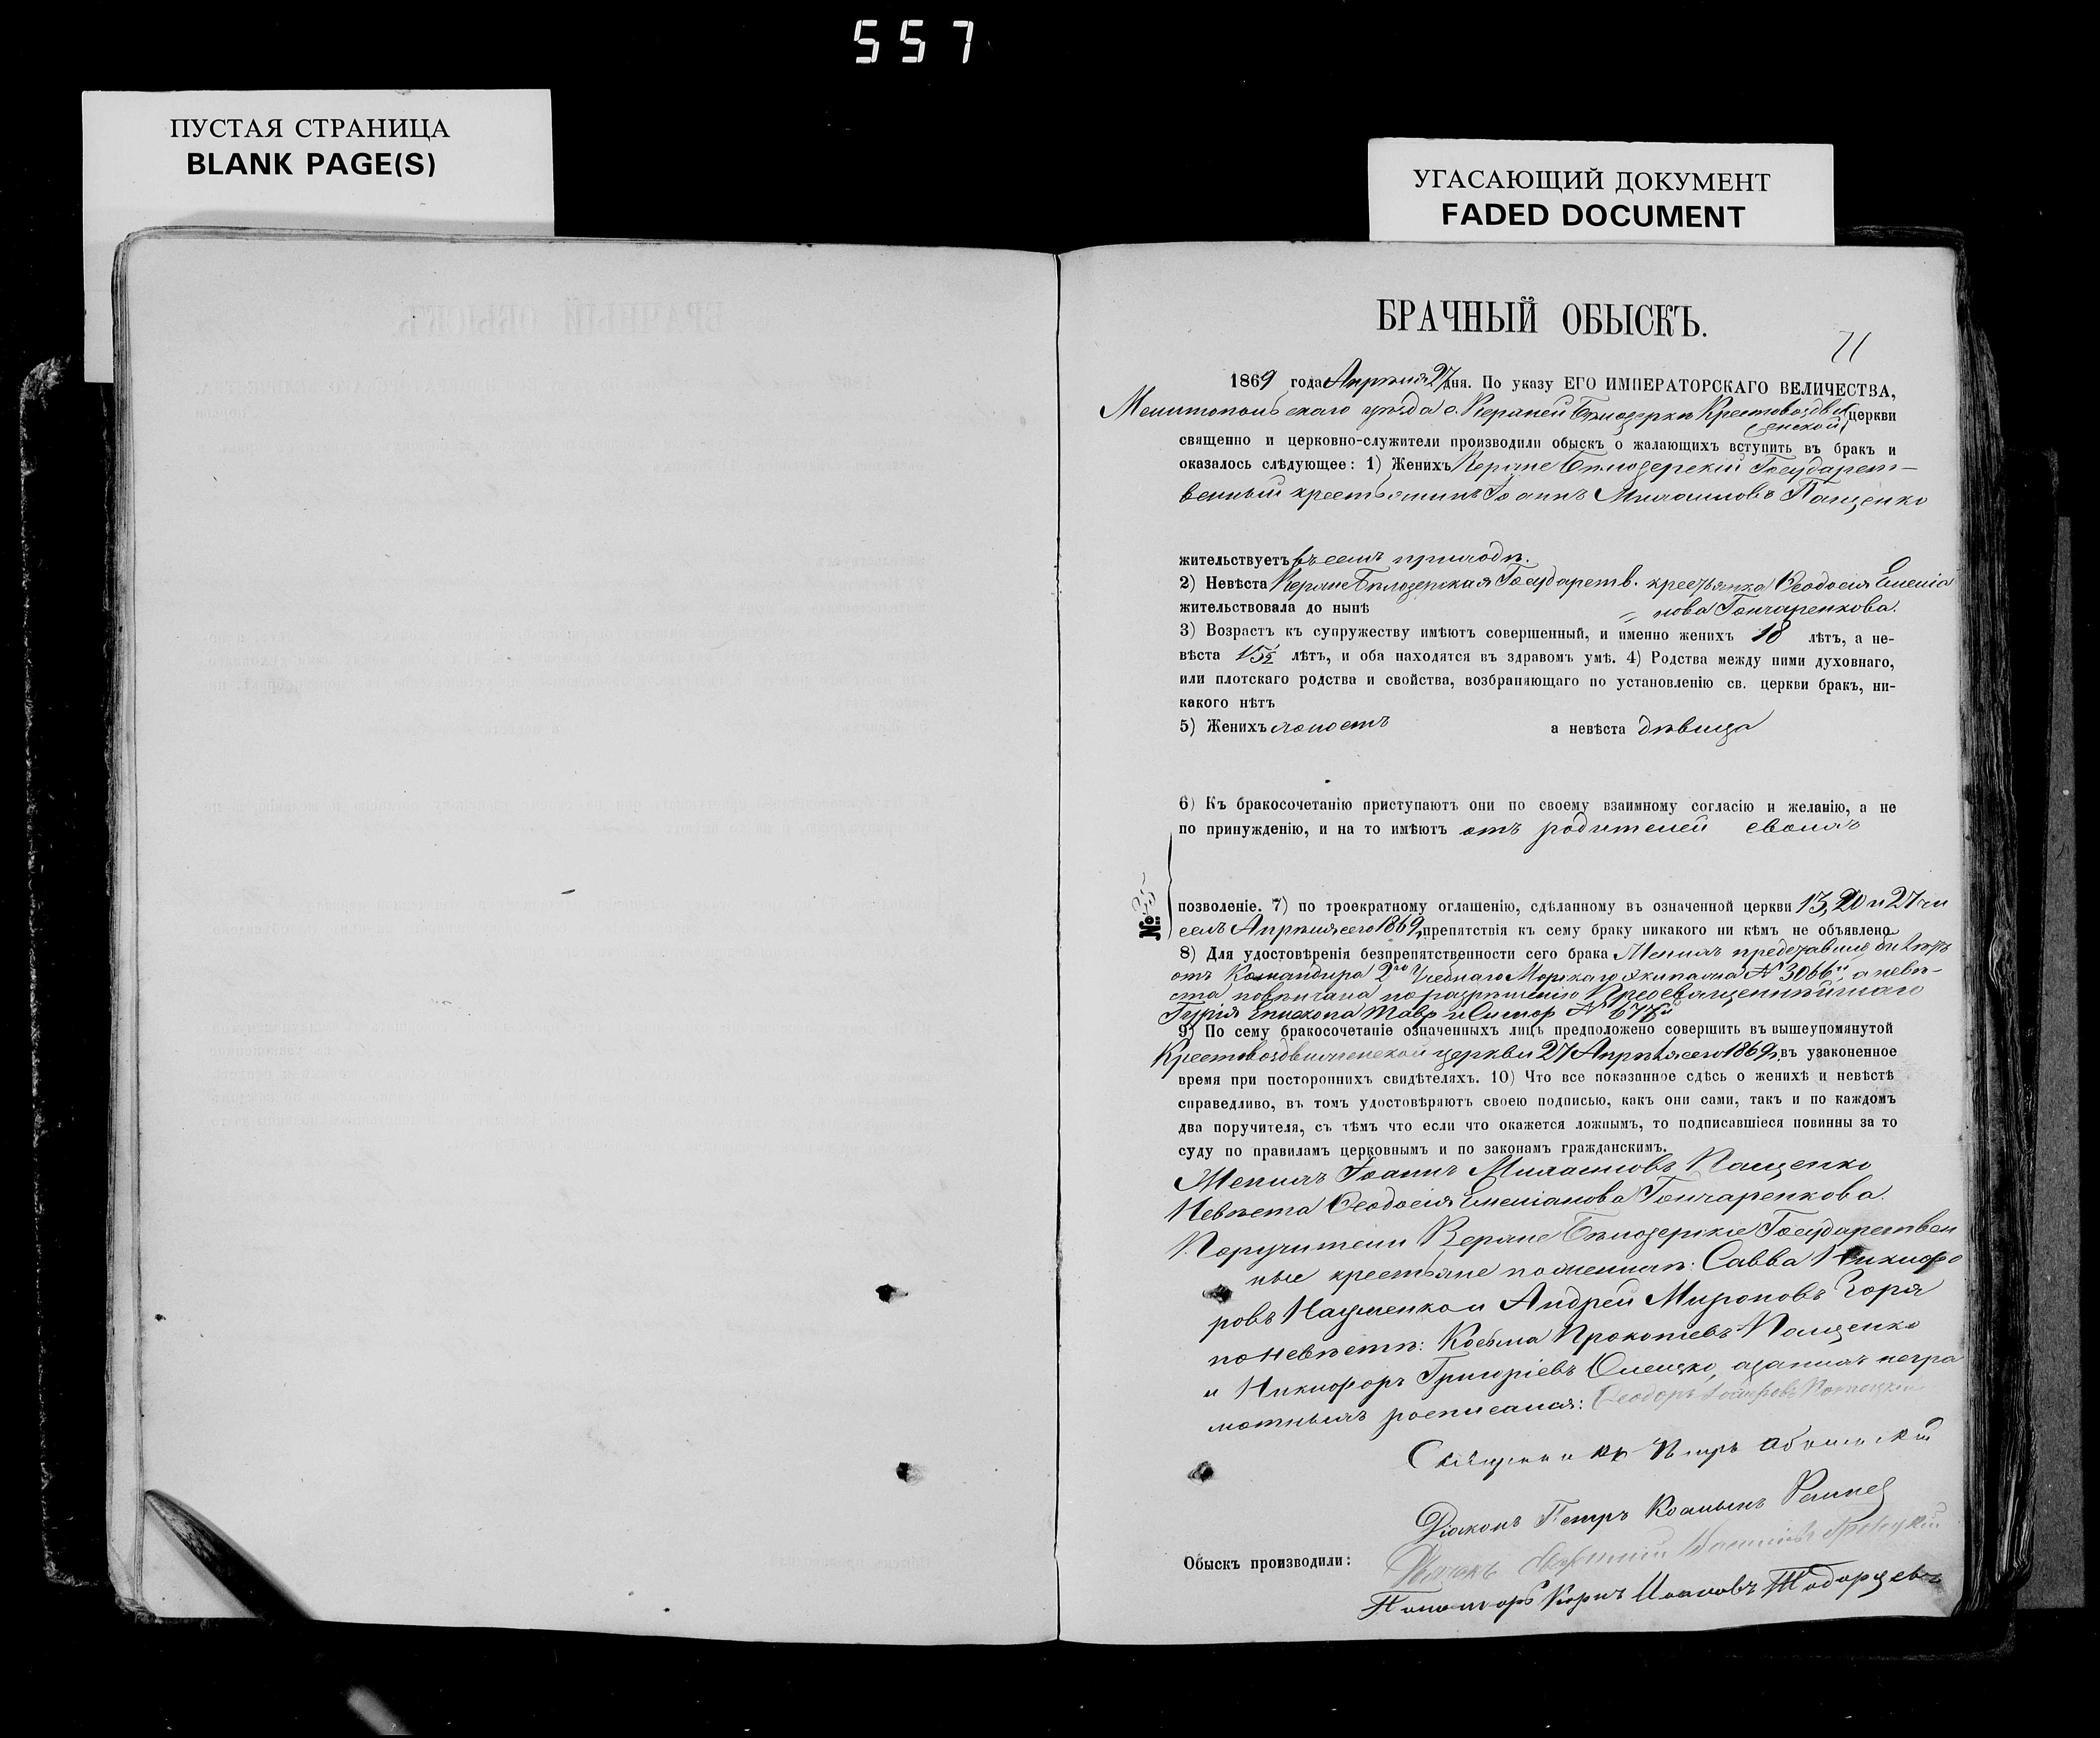 557
ПУСТАЯ СТРАНИЦА
BLANK PAGE(S)
УГАСАЮЩИЙ ДОКУМЕНТ
FADED DOCUMENT
БРАЧНЫЙ ОБЫСКЪ.
71
1869 года Апрѣля 27 дня. По указу ЕГО ИМПЕРАТОРСКАГО ВЕЛИЧЕСТВА,
Мелитопольскаго уѣзда с. Верхней Бѣлозерки Крестовоздви церкви
женской
священно и церковно-служители производили обыскъ о жалающихъ вступить въ бракъ и
оказалось слѣдующее: 1) Женихъ Верхне Бѣлозерскій Государст-
венный крестьянинъ Іоаннъ Михаиловъ Пащенко
жительствуетъ въ семъ приходѣ.
2) Невѣста Верхне Бѣлозерская Государств. крестьянка Ѳеодосія Емелiа
жительствовала до нынѣ = нова Гончаренкова.
3) Возрастъ къ супружеству имѣютъ совершенный, и именно женихъ 18 лѣтъ, а не-
вѣста 15½ лѣтъ, и оба находятся въ здравомъ умѣ. 4) Родства между ними духовнаго,
или плотскаго родства и свойства, возбраняющаго по установленію св. церкви бракъ, ни-
какого нѣтъ
5) Женихъ холостъ а невѣста дѣвица
6) Къ бракосочетанію приступаютъ они по своему взаимному согласію и желанію, а не
по принужденію, и на то имѣютъ отъ родителей своихъ
№: 35
позволеніе. 7) по троекратному оглашенію, сдѣланному въ означенной церкви 13, 20 и 27 чи
слъ Апрѣля сего 1869 г. препятствія къ сему браку никакого ни кѣмъ не объявлено
8) Для удостовѣренія безпрепятственности сего брака Женихъ представилъ билетъ
отъ Командира 2го Учебнаго Морскаго Экипажа № 3066й, а невѣ-
ста повѣнчана по разрѣшенію Преосвященнѣйшаго
Гурія Епископа Тавр. и Симфер №
9) По сему бракосочетаніе означенныхъ лицъ предположено совершить въ вышеупомянутой
Крестовоздвиженской церкви 27 Апрѣля сего 1869 г. въ узаконенное
время при постороннихъ свидѣтеляхъ. 10) Что все показанное сдѣсь о женихѣ и невѣстѣ
справедливо, въ томъ удостовѣряютъ своею подписью, какъ они сами, такъ и по каждомъ
два поручителя, съ тѣмъ что если что окажется ложнымъ, то подписавшіеся повинны за то
суду по правиламъ церковнымъ и по законамъ гражданскимъ.
Женихъ Іоаннъ Михаиловъ Пащенко
Невѣста Ѳеодосія Емеліанова Гончаренкова.
Поручители Верхне Бѣлозерскіе Государствен
ные крестьяне по женихѣ: Савва Никифо
ровъ Науменко и Андрей Мироновъ Горя
по невѣстѣ: Косьма Прокопіевъ Пащенко
и Никифоръ Григоріевъ а за нихъ негра
мотныхъ росписался: Ѳеодоръ
Священникъ Петръ
Діаконъ Петръ Козминъ
Обыскъ производили:
Пономарь Іоанновъ